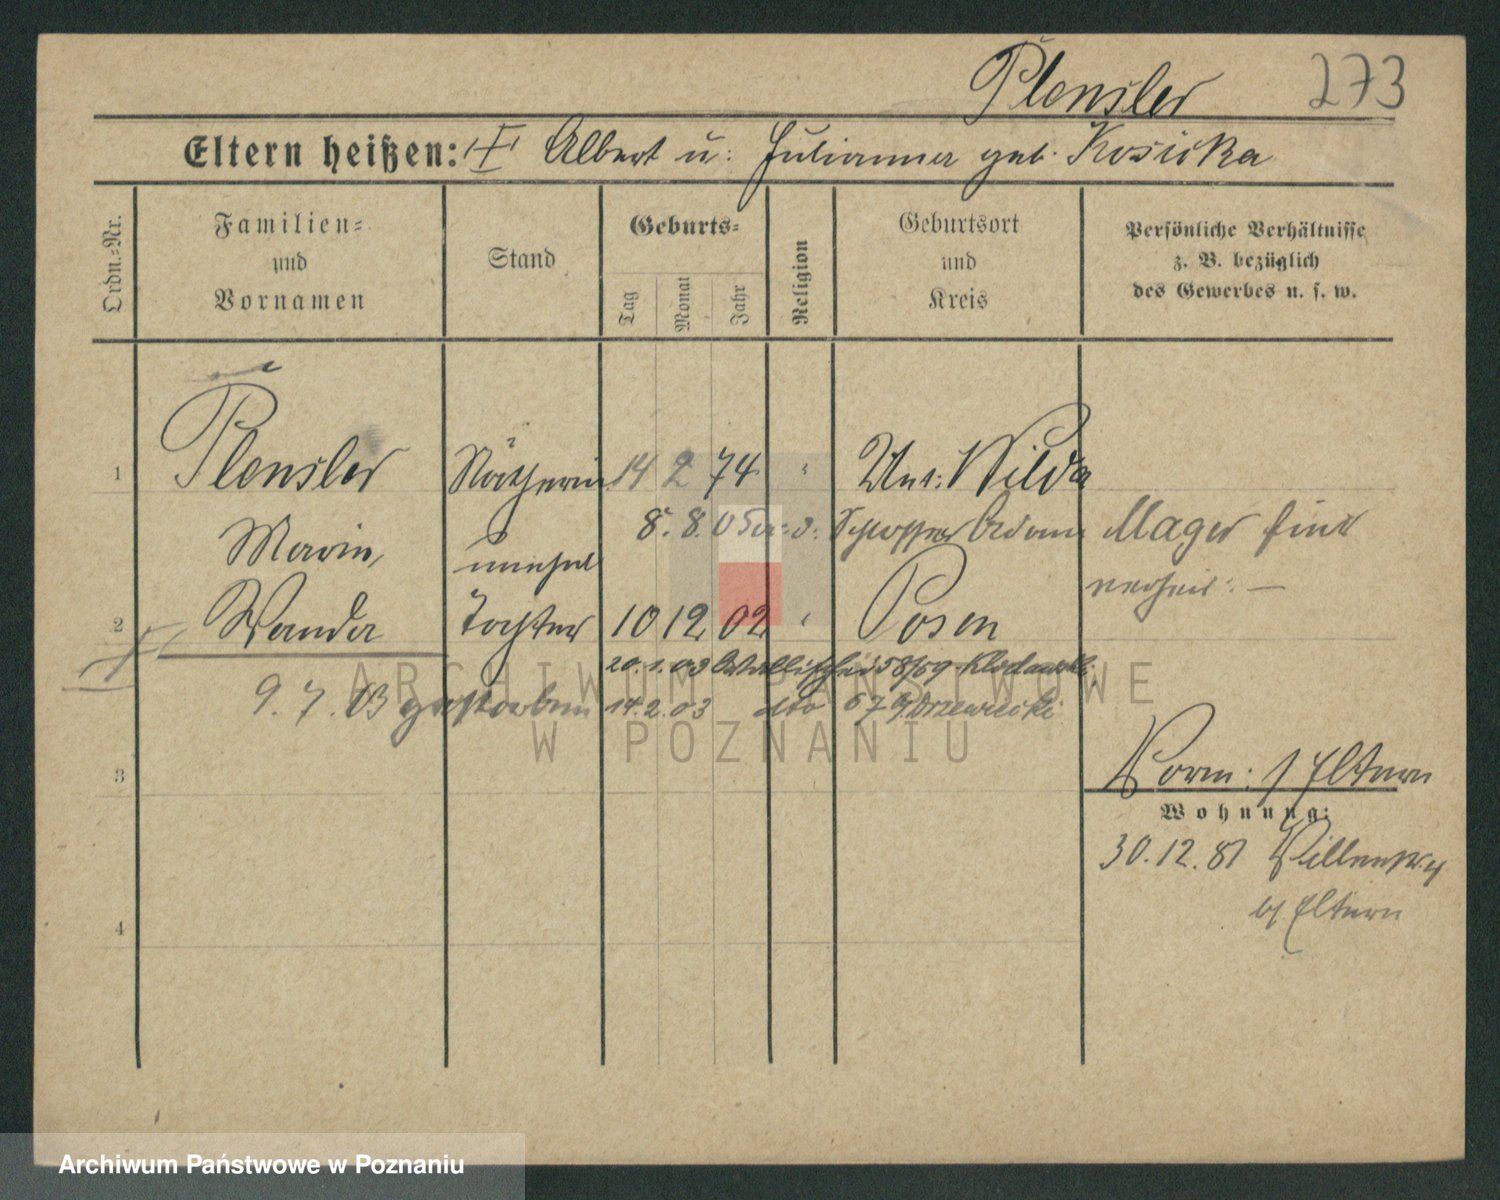 Plensler 273
Eltern heißen: I Albert u: Julianna geb. Kosicka
Ordn.=Nr.
Familien=
und
Vornamen
Stand
Geburts=
Tag
Monat
Jahr
Religion
Geburtsort
und
Kreis
Persönliche Verhältnisse
z. B. bezüglich
des Gewerbes u. s. w.
1 Plensler Nätherin 14 2 74 Unt: Wilda
Marie, unehel 8. 8. 05 Schlosser Adam Mager sind
verheir: —
2 Wanda Tochter 10 12 02 Posen
20. 1. 03 Wallischei 58/59
9. 7. 03 gestorben 14. 2. 03 dto 67 Drzewiecki
3
Vorm: f Eltern
Wohnung:
30. 12. 81
bei Eltern
4
ARCHIWUM PAŃSTWOWE
W POZNANIU
Archiwum Państwowe w Poznaniu